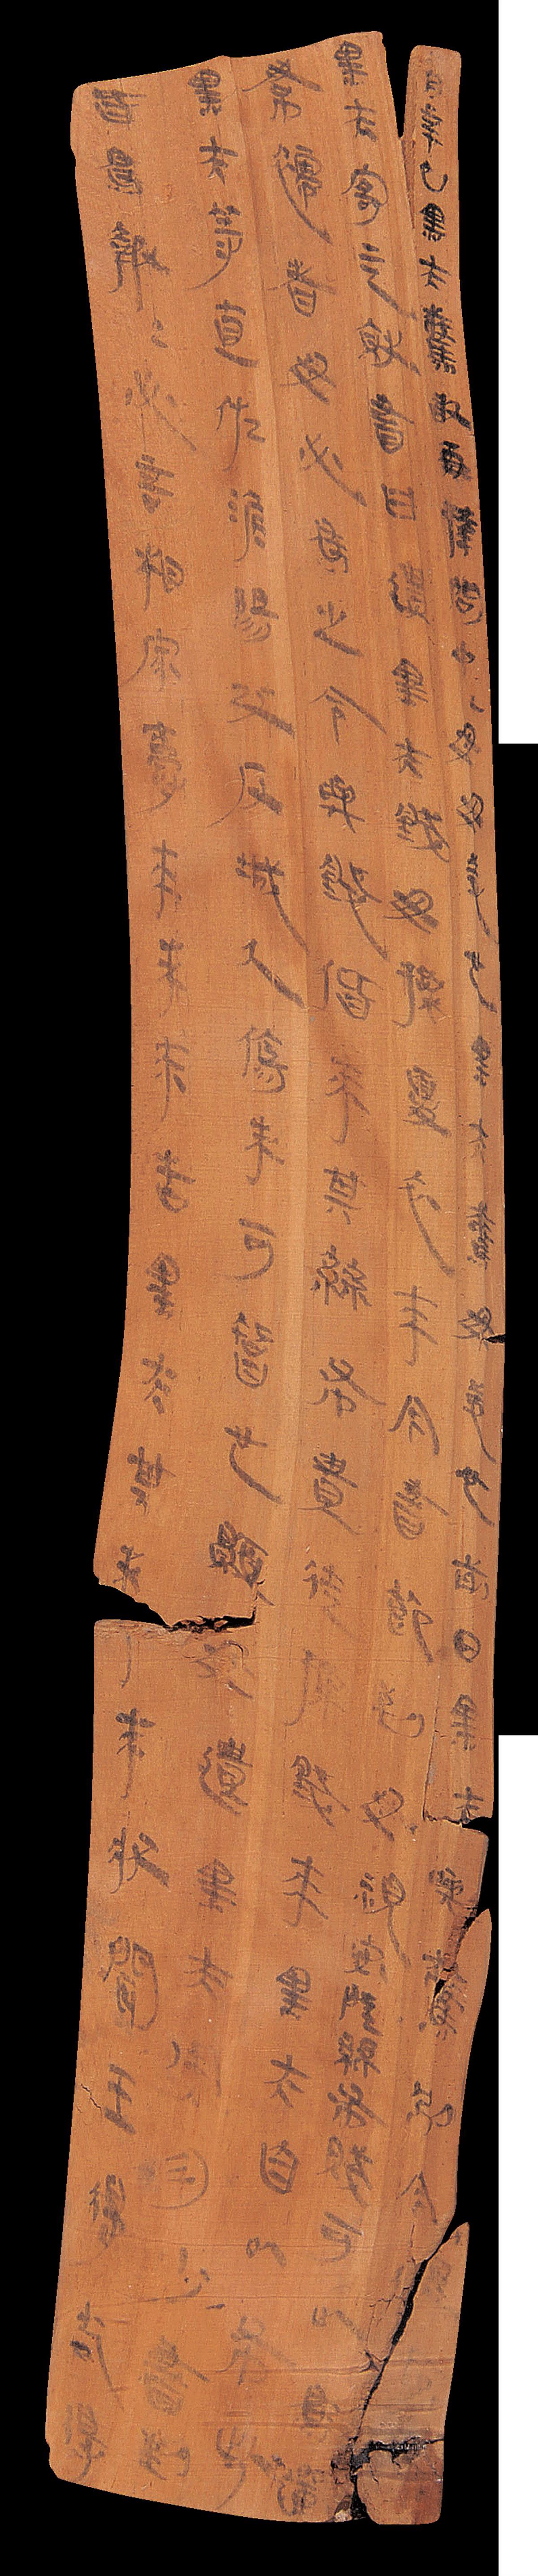 二月辛巳黑夫驚敢再拜問中＝母毋恙也黑夫驚毋恙也前日黑夫與驚別今復會矣
黑夫寄益就書曰遺黑夫錢毋操夏衣來今書節到母視安陸絲布賤可以為禪
帬襦者母必為之令與錢偕來其絲布貴徒以錢來黑夫自以布此
黑夫等直佐淮陽攻反城久傷未可智也願母遺黑夫用勿少書到
皆為報＝必言相家爵來未來告黑夫其未來狀聞王得苟得